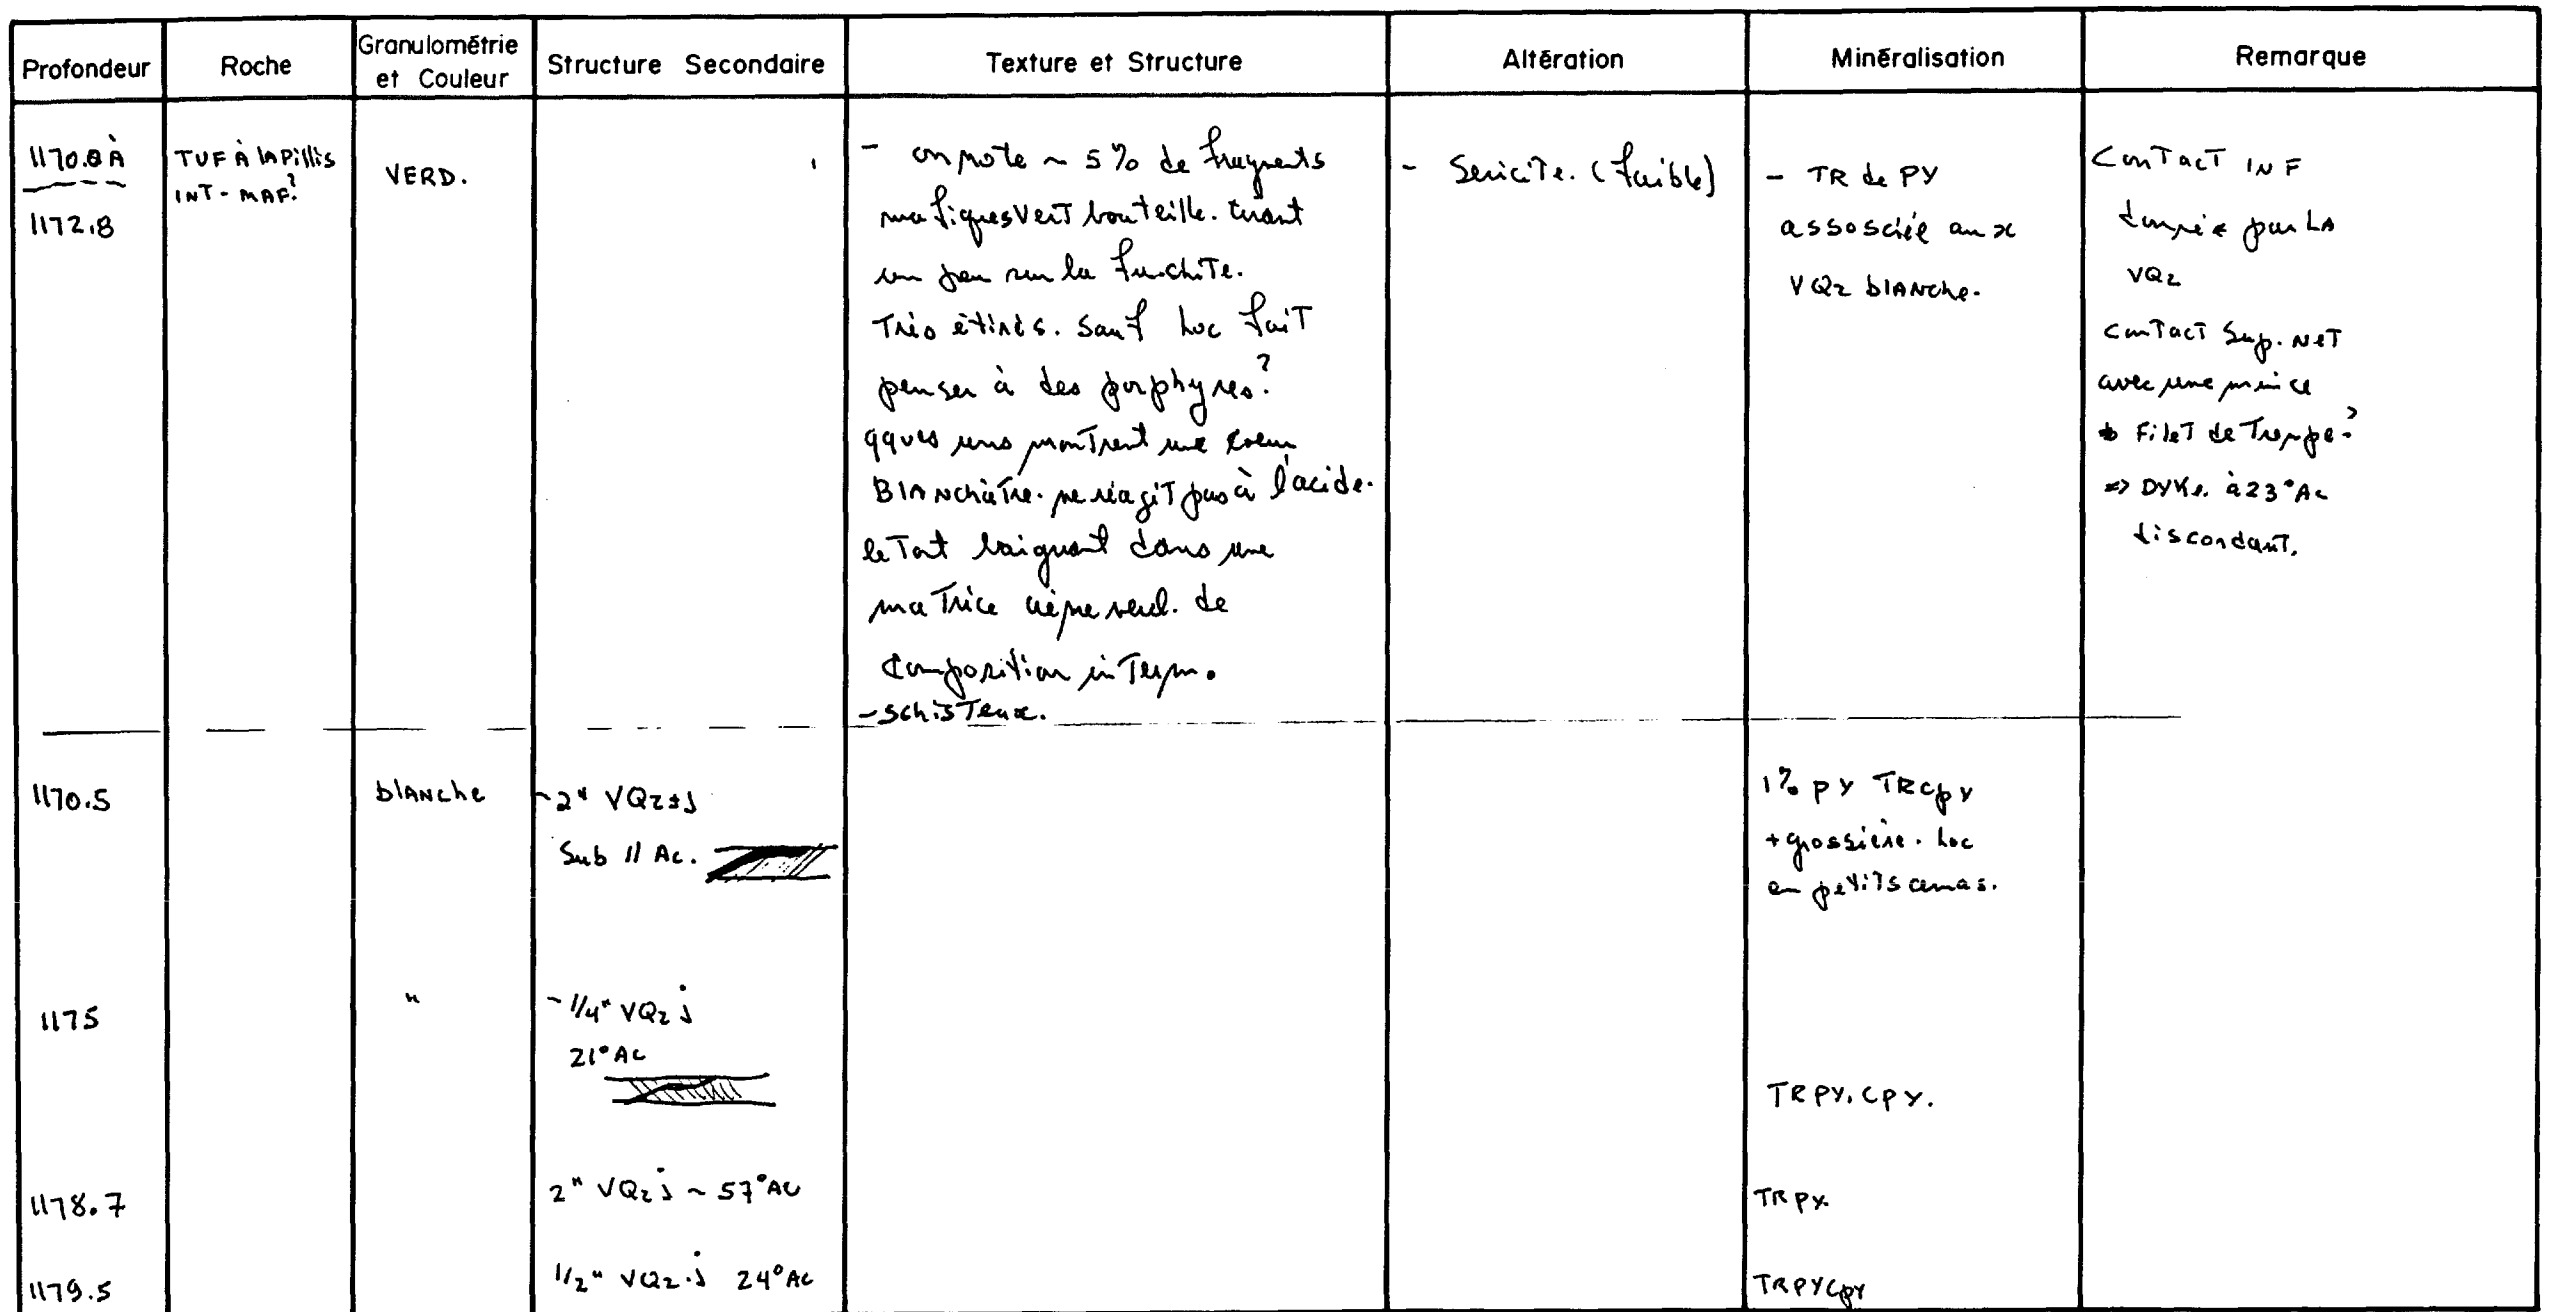 Profondeur
Roche
Granulométrie
et Couleur
Structure Secondaire
Texture et Structure
Altération
Minéralisation
Remarque
1170.8 À
1172.8
TUF À lAPillis
INT - MAF?
VERD.
- on note ~ 5% de fragments
mafiques vert bouteille. tirant
un peu sur la fuschite.
Très étirés. Sauf loc fait
penser à des porphyres?
qques uns montrent une
BlANchâtre. ne réagit pas à l'acide.
le Tout baignant dans une
matrice verd. de
composition interm.
- schisTeux.
- SericiTe. (faible)
- TR de PY
assosciée aux
VQz blANche.
ConTacT INF
par LA
VQz
conTacT Sup. NeT
avec une mince
FileT de Trempe?
=> DYKe. à 23° Ac
discordanT.
1170.5
blANche
~2" VQz±j
Sub // Ac.
1% PY TRcpy
+ grossière. Loc
en petiTs amas.
1175
"
~1/4" VQz j
21° Ac
TR PY. CPY.
1178.7
2" VQz j ~ 57° AC
TR PY.
1179.5
1/2" VQz.j 24° AC
TRPYCPY